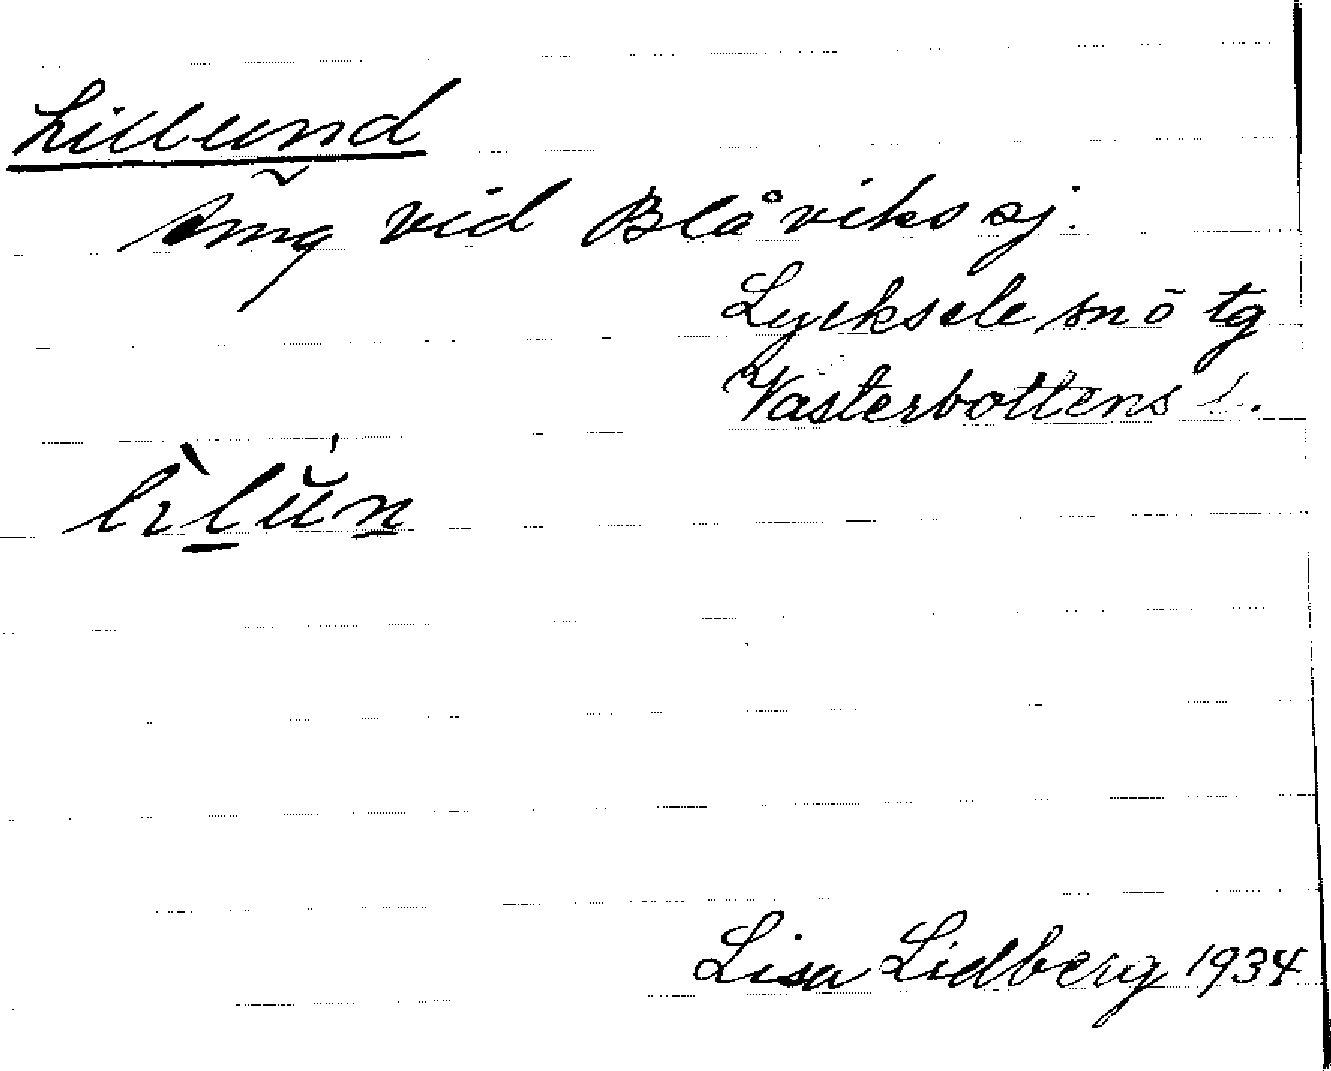 Lillund
Äng vid Blåvikssj.
Lycksele snö tg
Västerbottens l.
Lisa Lidberg 1934